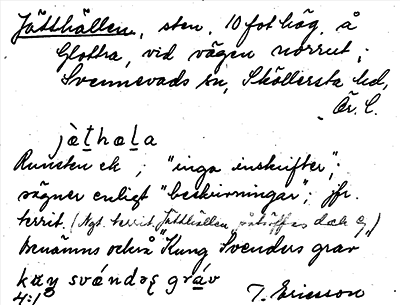 Jätthällen, sten, 10 fot hög, å
Glottra, vid vägen norrut;
Svennevads sn, Sköllersta hd,
Ör. l.
jὲt̲hæl̲a
Runsten ek ; "inga inskrifter";
sägner enligt "beskrivningar"; jfr
territ. (Ngt. territ. Jätthällen dock ej)
Benämns också "Kung Svenders grav
kɯŋ svándəʂ gráv
4:18 T. Ericsson